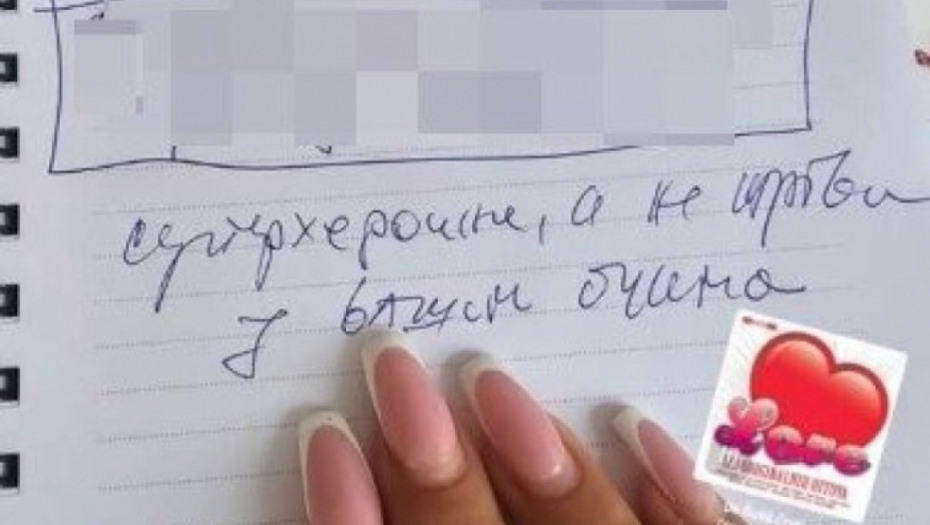 суперхероине, а не жртве
у вашим очима
Love